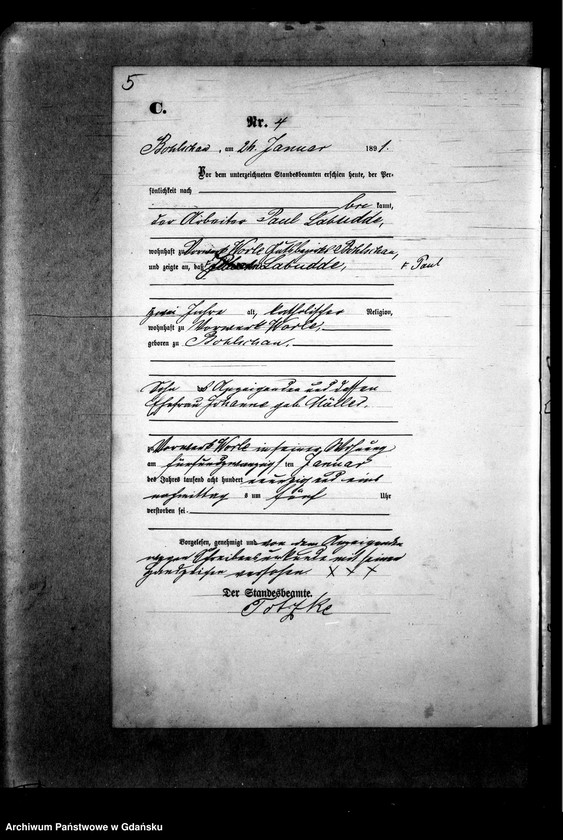 5
C.
Nr. 4
Bohlschau, am 26. Januar 1891.
Vor dem unterzeichneten Standesbeamten erschien heute, der Per-
sönlichkeit nach
be kannt,
der Arbeiter Paul Labudde,
wohnhaft zu Vorwerk Worle Gutsbezirk Bohlschau,
und zeigte an, daß Labudde, F Paul
zwei Jahre alt, katholischer Religion,
wohnhaft zu Vorwerk Worle,
geboren zu Bohlschau,
Sohn des Anzeigenden und dessen
Ehefrau Johanne geb Müller,
zu Vorwerk Worle in seiner Wohnung
am fünfundzwanzig ten Januar
des Jahres tausend acht hundert neunzig und eins
nachmittag s um fünf Uhr
verstorben sei.
Vorgelesen, genehmigt und von dem Anzeigenden
wegen Schreibensunkunde mit seinen
Handzeichen versehen XXX
Der Standesbeamte.
Totzke
Archiwum Państwowe w Gdańsku